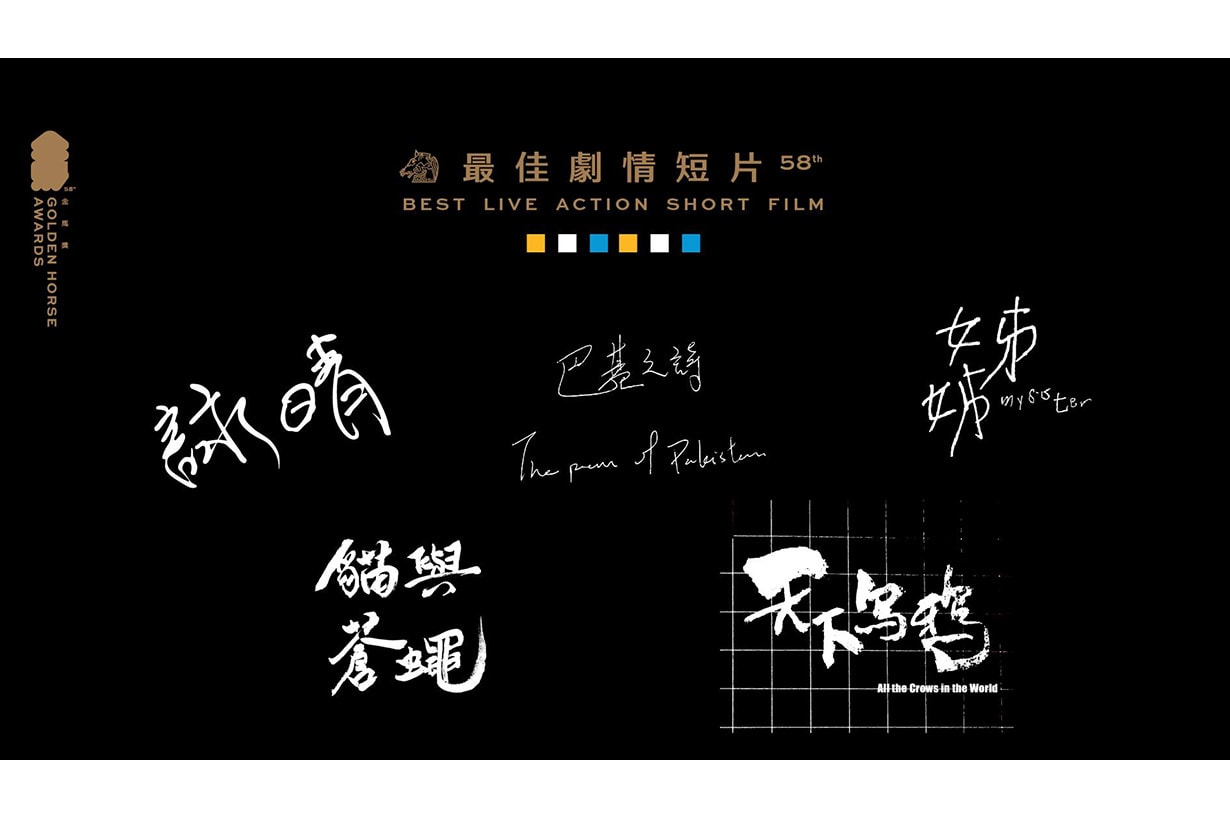 58th
金馬獎
GOLDEN HORSE
AWARDS
最佳劇情短片 58th
BEST LIVE ACTION SHORT FILM
詠晴
The poem of Pakistan
姊
姊 my sister
貓與
蒼蠅
天下烏鴉
All the Crows in the World